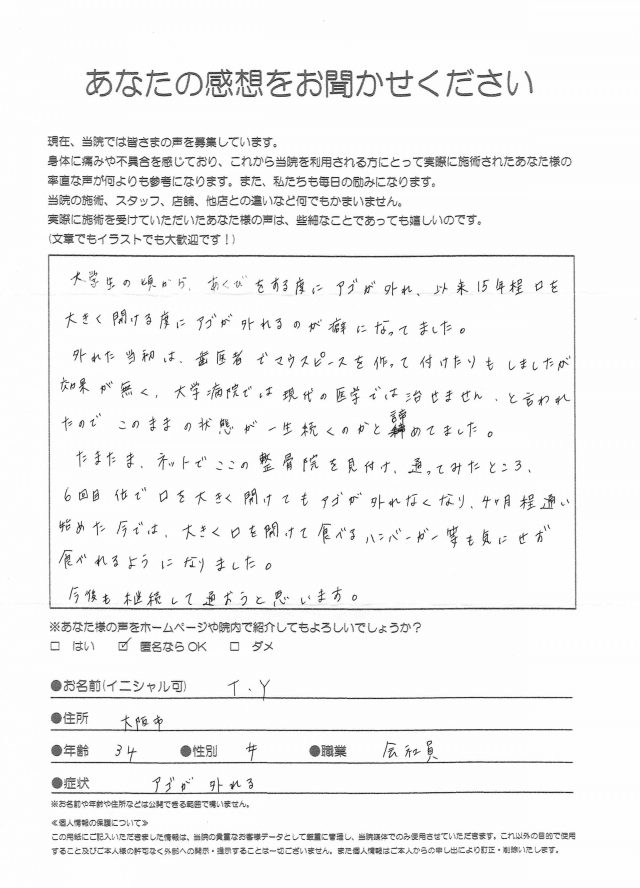 あなたの感想をお聞かせください
現在、当院では皆さまの声を募集しています。
身体に痛みや不具合を感じており、これから当院を利用される方にとって実際に施術されたあなた様の
率直な声が何よりも参考になります。また、私たちも毎日の励みになります。
当院の施術、スタッフ、店舗、他店との違いなど何でもかまいません。
実際に施術を受けていただいたあなた様の声は、些細なことであっても嬉しいのです。
(文章でもイラストでも大歓迎です！)
大学生の頃から、あくびをする度にアゴが外れ、以来15年程口を
大きく開ける度にアゴが外れるのが癖になってました。
外れた当初は、歯医者でマウスピースを作って付けたりもしましたが
効果が無く、大学病院では現代の医学では治せません、と言われ
たのでこのままの状態が一生続くのかと諦めてました。
たまたま、ネットでここの整骨院を見付け、通ってみたところ、
6回目位で口を大きく開けてもアゴが外れなくなり、4ヶ月程通い
始めた今では、大きく口を開けて食べるハンバーガー等も気にせず
食べれるようになりました。
今後も継続して通おうと思います。
※あなた様の声をホームページや院内で紹介してもよろしいでしょうか？
□ はい ☑ 匿名ならOK □ ダメ
●お名前(イニシャル可) T.Y
●住所 大阪市
●年齢 34 ●性別 女 ●職業 会社員
●症状 アゴが外れる
※お名前や年齢や住所などは公開できる範囲で構いません。
≪個人情報の保護について≫
この用紙にご記入いただきました情報は、当院の貴重なお客様データとして厳重に管理し、当院媒体でのみ使用させていただきます。これ以外の目的で使用
すること及びご本人様の許可なく外部への開示・提示することは一切ございません。また個人情報はご本人からの申し出により訂正・削除いたします。